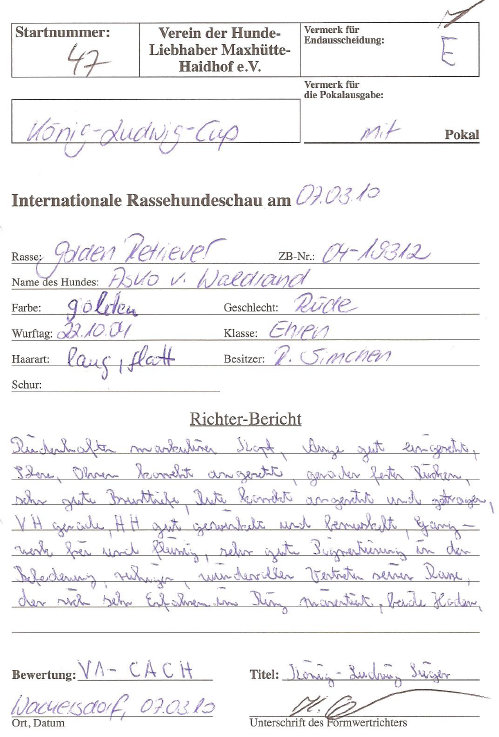 Startnummer: 47
Verein der Hunde-
Liebhaber Maxhütte-
Haidhof e.V.
Vermerk für
Endausscheidung:
E
Vermerk für
die Pokalausgabe:
König-Ludwig-Cup
mit Pokal
Internationale Rassehundeschau am 07.03.10
Rasse: golden Retriever ZB-Nr.: 04-19312
Name des Hundes: Asko v. Waldrand
Farbe: golden Geschlecht: Rüde
Wurftag: 22.10.04 Klasse: Ehren
Haarart: lang, glatt Besitzer: R. Simchen
Schur:
Richter-Bericht
Rüdenhafter markanter Kopf, Auge gut eingesetzt,
Ohren korrekt angesetzt, gerader fester Rücken,
sehr gute Brusttiefe, Rute korrekt angesetzt und getragen,
VH gerade, HH gut gewinkelt und bemuskelt, Gang-
werk frei und flüssig, sehr gute Pigmentierung in der
Befederung, ruhiger, wundervoller Vertreter seiner Rasse,
der sich sehr Erfahren im Ring präsentiert, beide Hoden,
Bewertung: V1- CACH Titel: König-Ludwig Sieger
Wackersdorf, 07.03.10
Ort, Datum Unterschrift des Formwertrichters